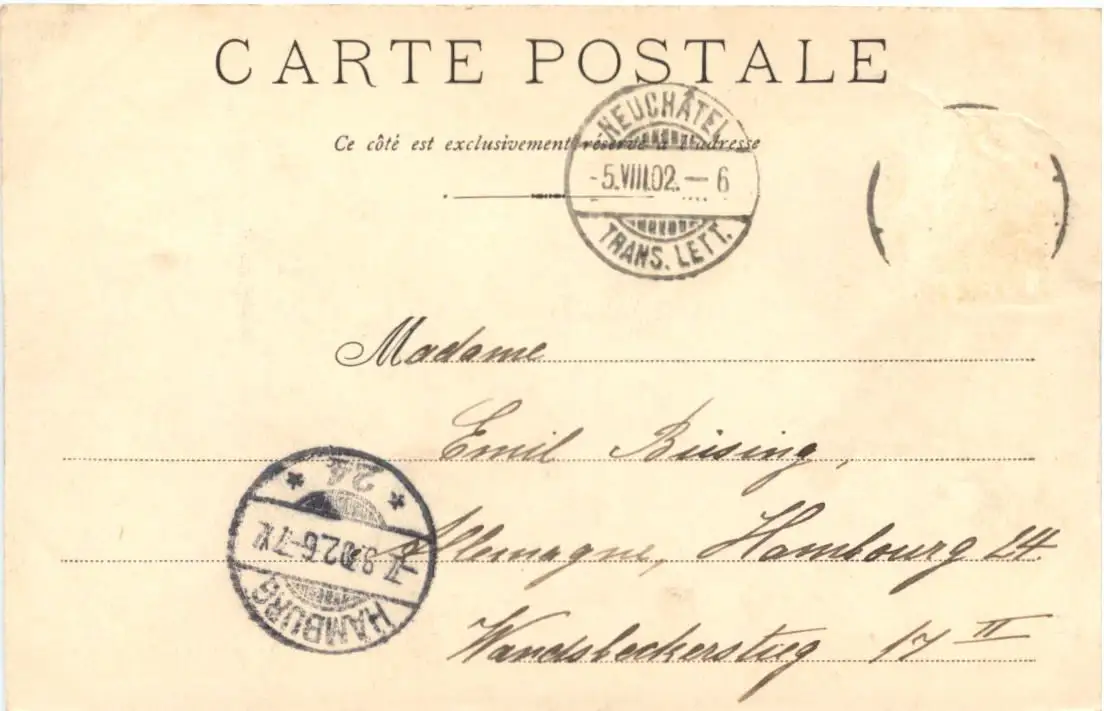 CARTE POSTALE
Ce côté est exclusivement réservé à l'adresse
NEUCHÂTEL
-5.VIII.02.-6
TRANS. LETT.
Madame
Emil Büsing,
Allemagne, Hambourg 24.
Wandsbeckerstieg 17 II
HAMBURG
7.8.02.6-7 N
* 24 *